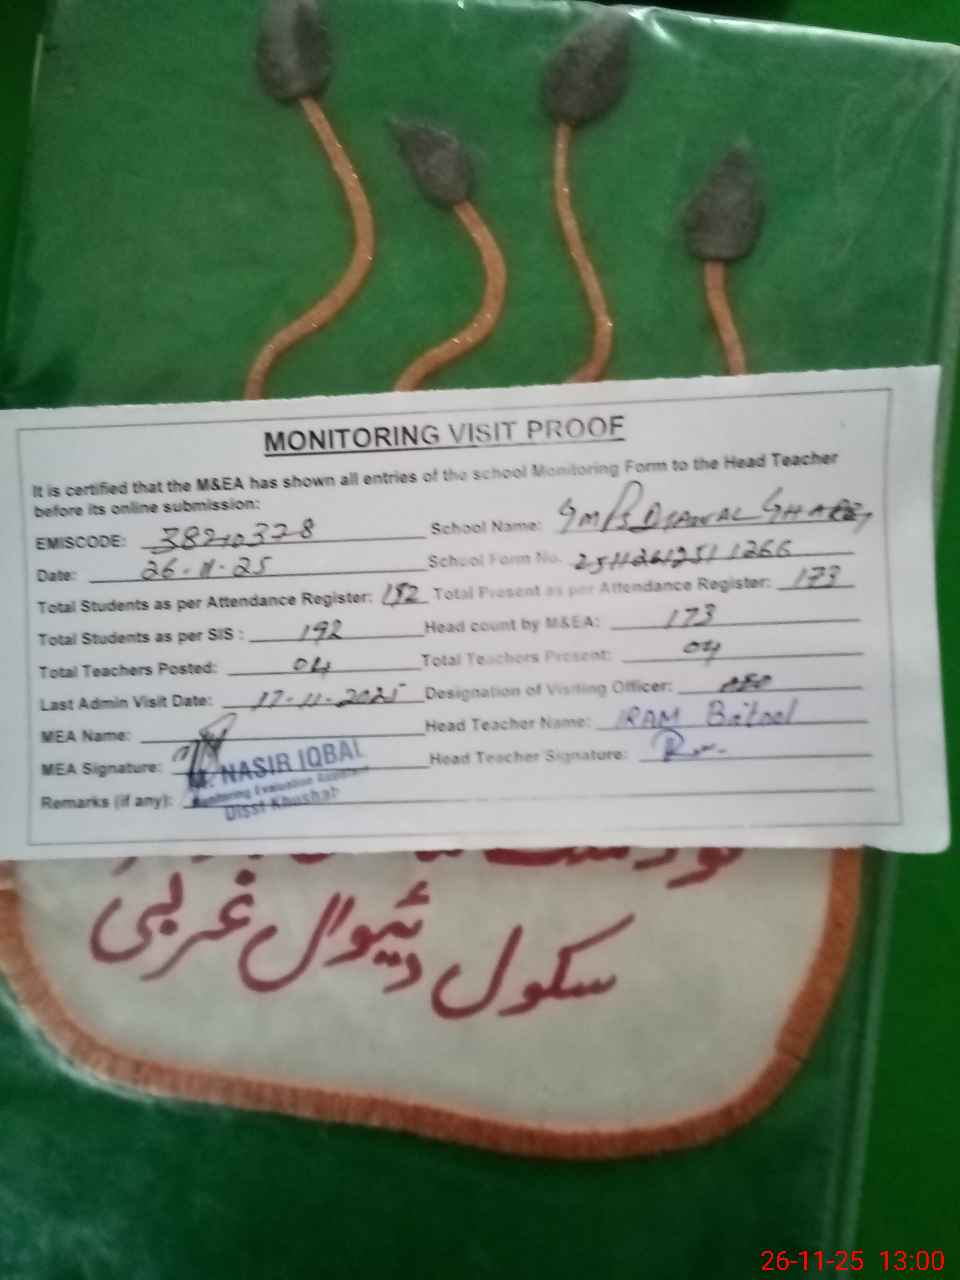 MONITORING VISIT PROOF
It is certified that the M&EA has shown all entries of the school Monitoring Form to the Head Teacher
before its online submission:
EMISCODE: 38210328 School Name: GMPS DIAWAL GHARBI
Date: 26-11-25 School Form No. 2511261251 1266
Total Students as per Attendance Register: 192 Total Present as per Attendance Register: 173
Total Students as per SIS : 192 Head count by M&EA: 173
Total Teachers Posted: 04 Total Teachers Present: 04
Last Admin Visit Date: 17-11-2025 Designation of Visiting Officer:
MEA Name: Head Teacher Name: IRAM Batool
MEA Signature: Head Teacher Signature:
M. NASIR IQBAL
Monitoring Evaluation Assistant
Disst Khushab
Remarks (if any):
سکول دئیوال غربی
26-11-25 13:00